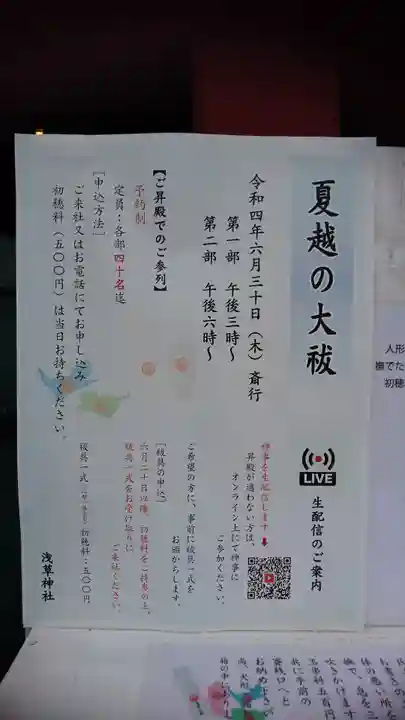 夏越の大祓
令和四年六月三十日（木）斎行
第一部　午後三時～
第二部　午後六時～
【ご昇殿でのご参列】
予約制
定員：各部四十名迄
［申込方法］
ご来社又はお電話にてお申し込み
初穂料（五〇〇円）は当日お持ちください。
LIVE
生配信のご案内
神事を生配信します
昇殿が適わない方は、
オンライン上にて神事に
ご参加ください。
ご希望の方に、事前に祓具一式を
お頒かちします。
［祓具の申込］
六月二十日以降、初穂料をご持参の上、
祓具一式をお受け取りに
ご来社ください。
祓具一式 初穂料：五〇〇円
浅草神社
人形
撫でた
初穂
息を
吹きかけます
玉串料五百円
共に手前の
賽銭口へと
お納め下さい